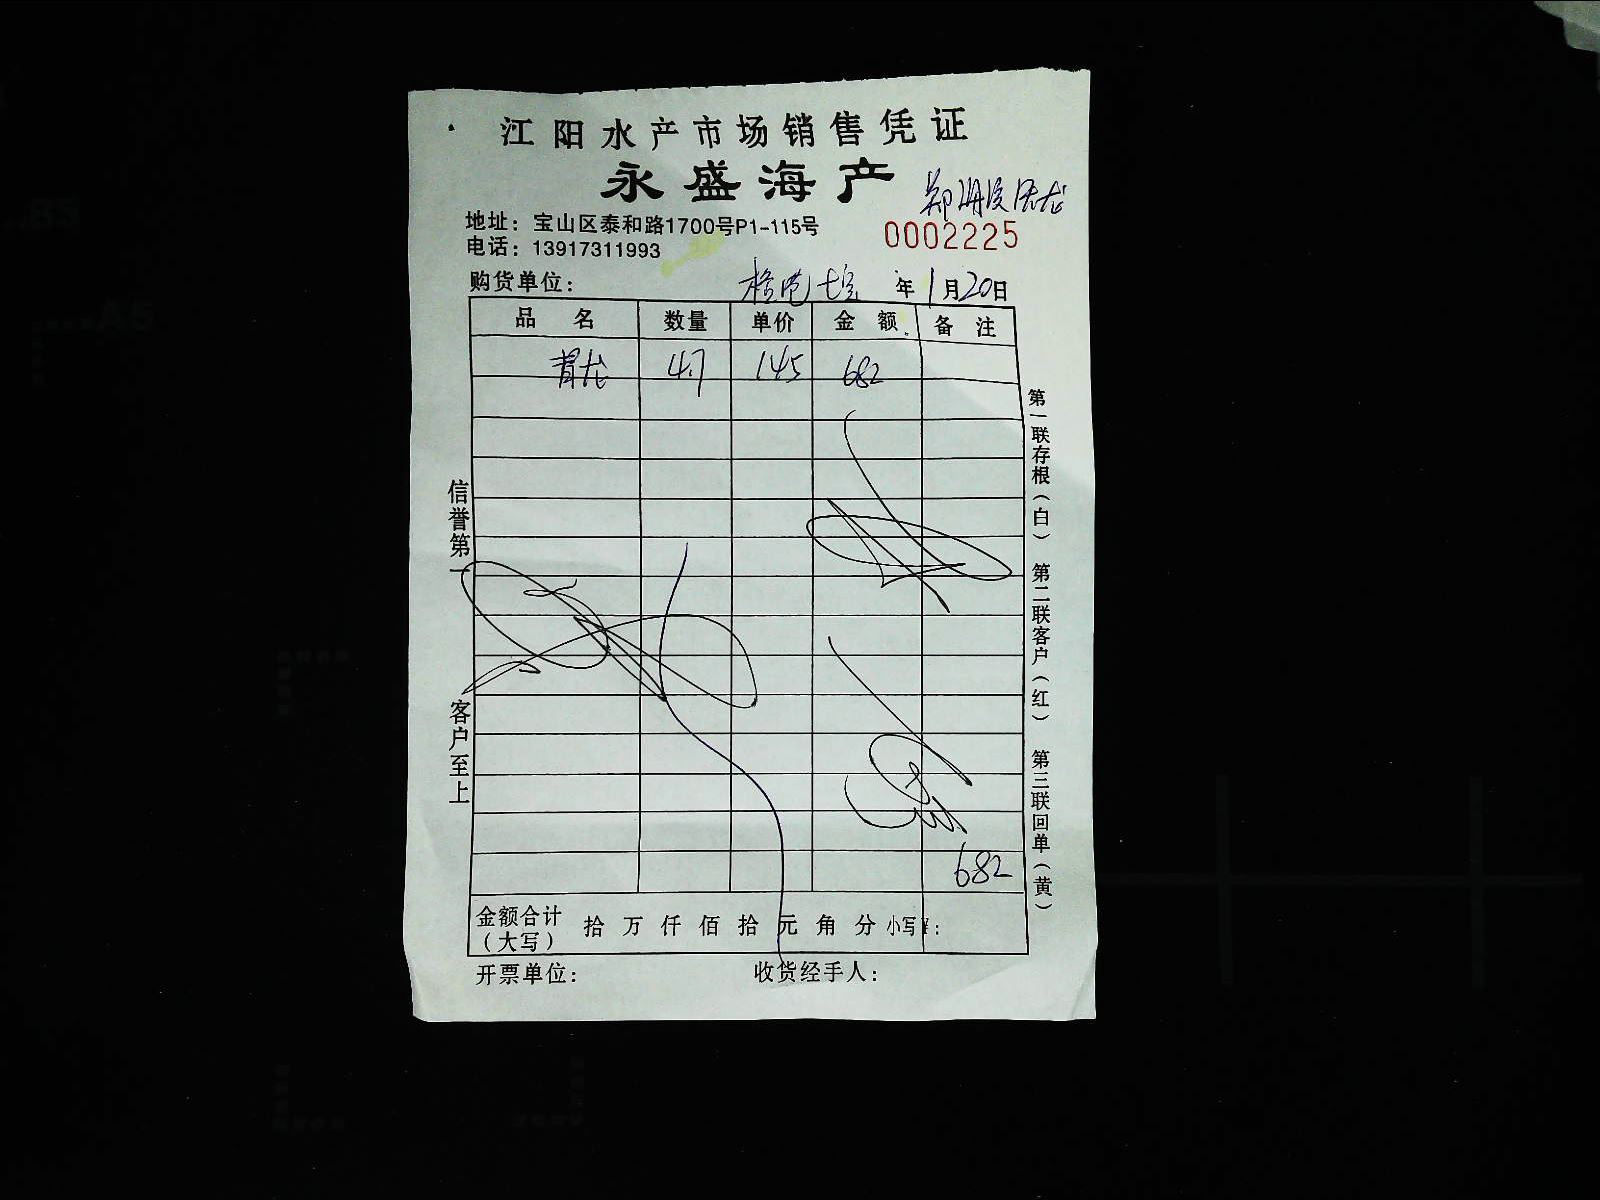 江阳水产市场销售凭证
永盛海产
地址：宝山区泰和路1700号P1-115号
0002225
电话：13917311993
购货单位： 年1月20日
品 名 数量 单价 金 额 备 注
青龙 4.7 145 682
信誉第一 客户至上
第一联存根（白） 第二联客户（红） 第三联回单（黄）
682
金额合计（大写） 拾 万 仟 佰 拾 元 角 分 小写¥：
开票单位： 收货经手人：